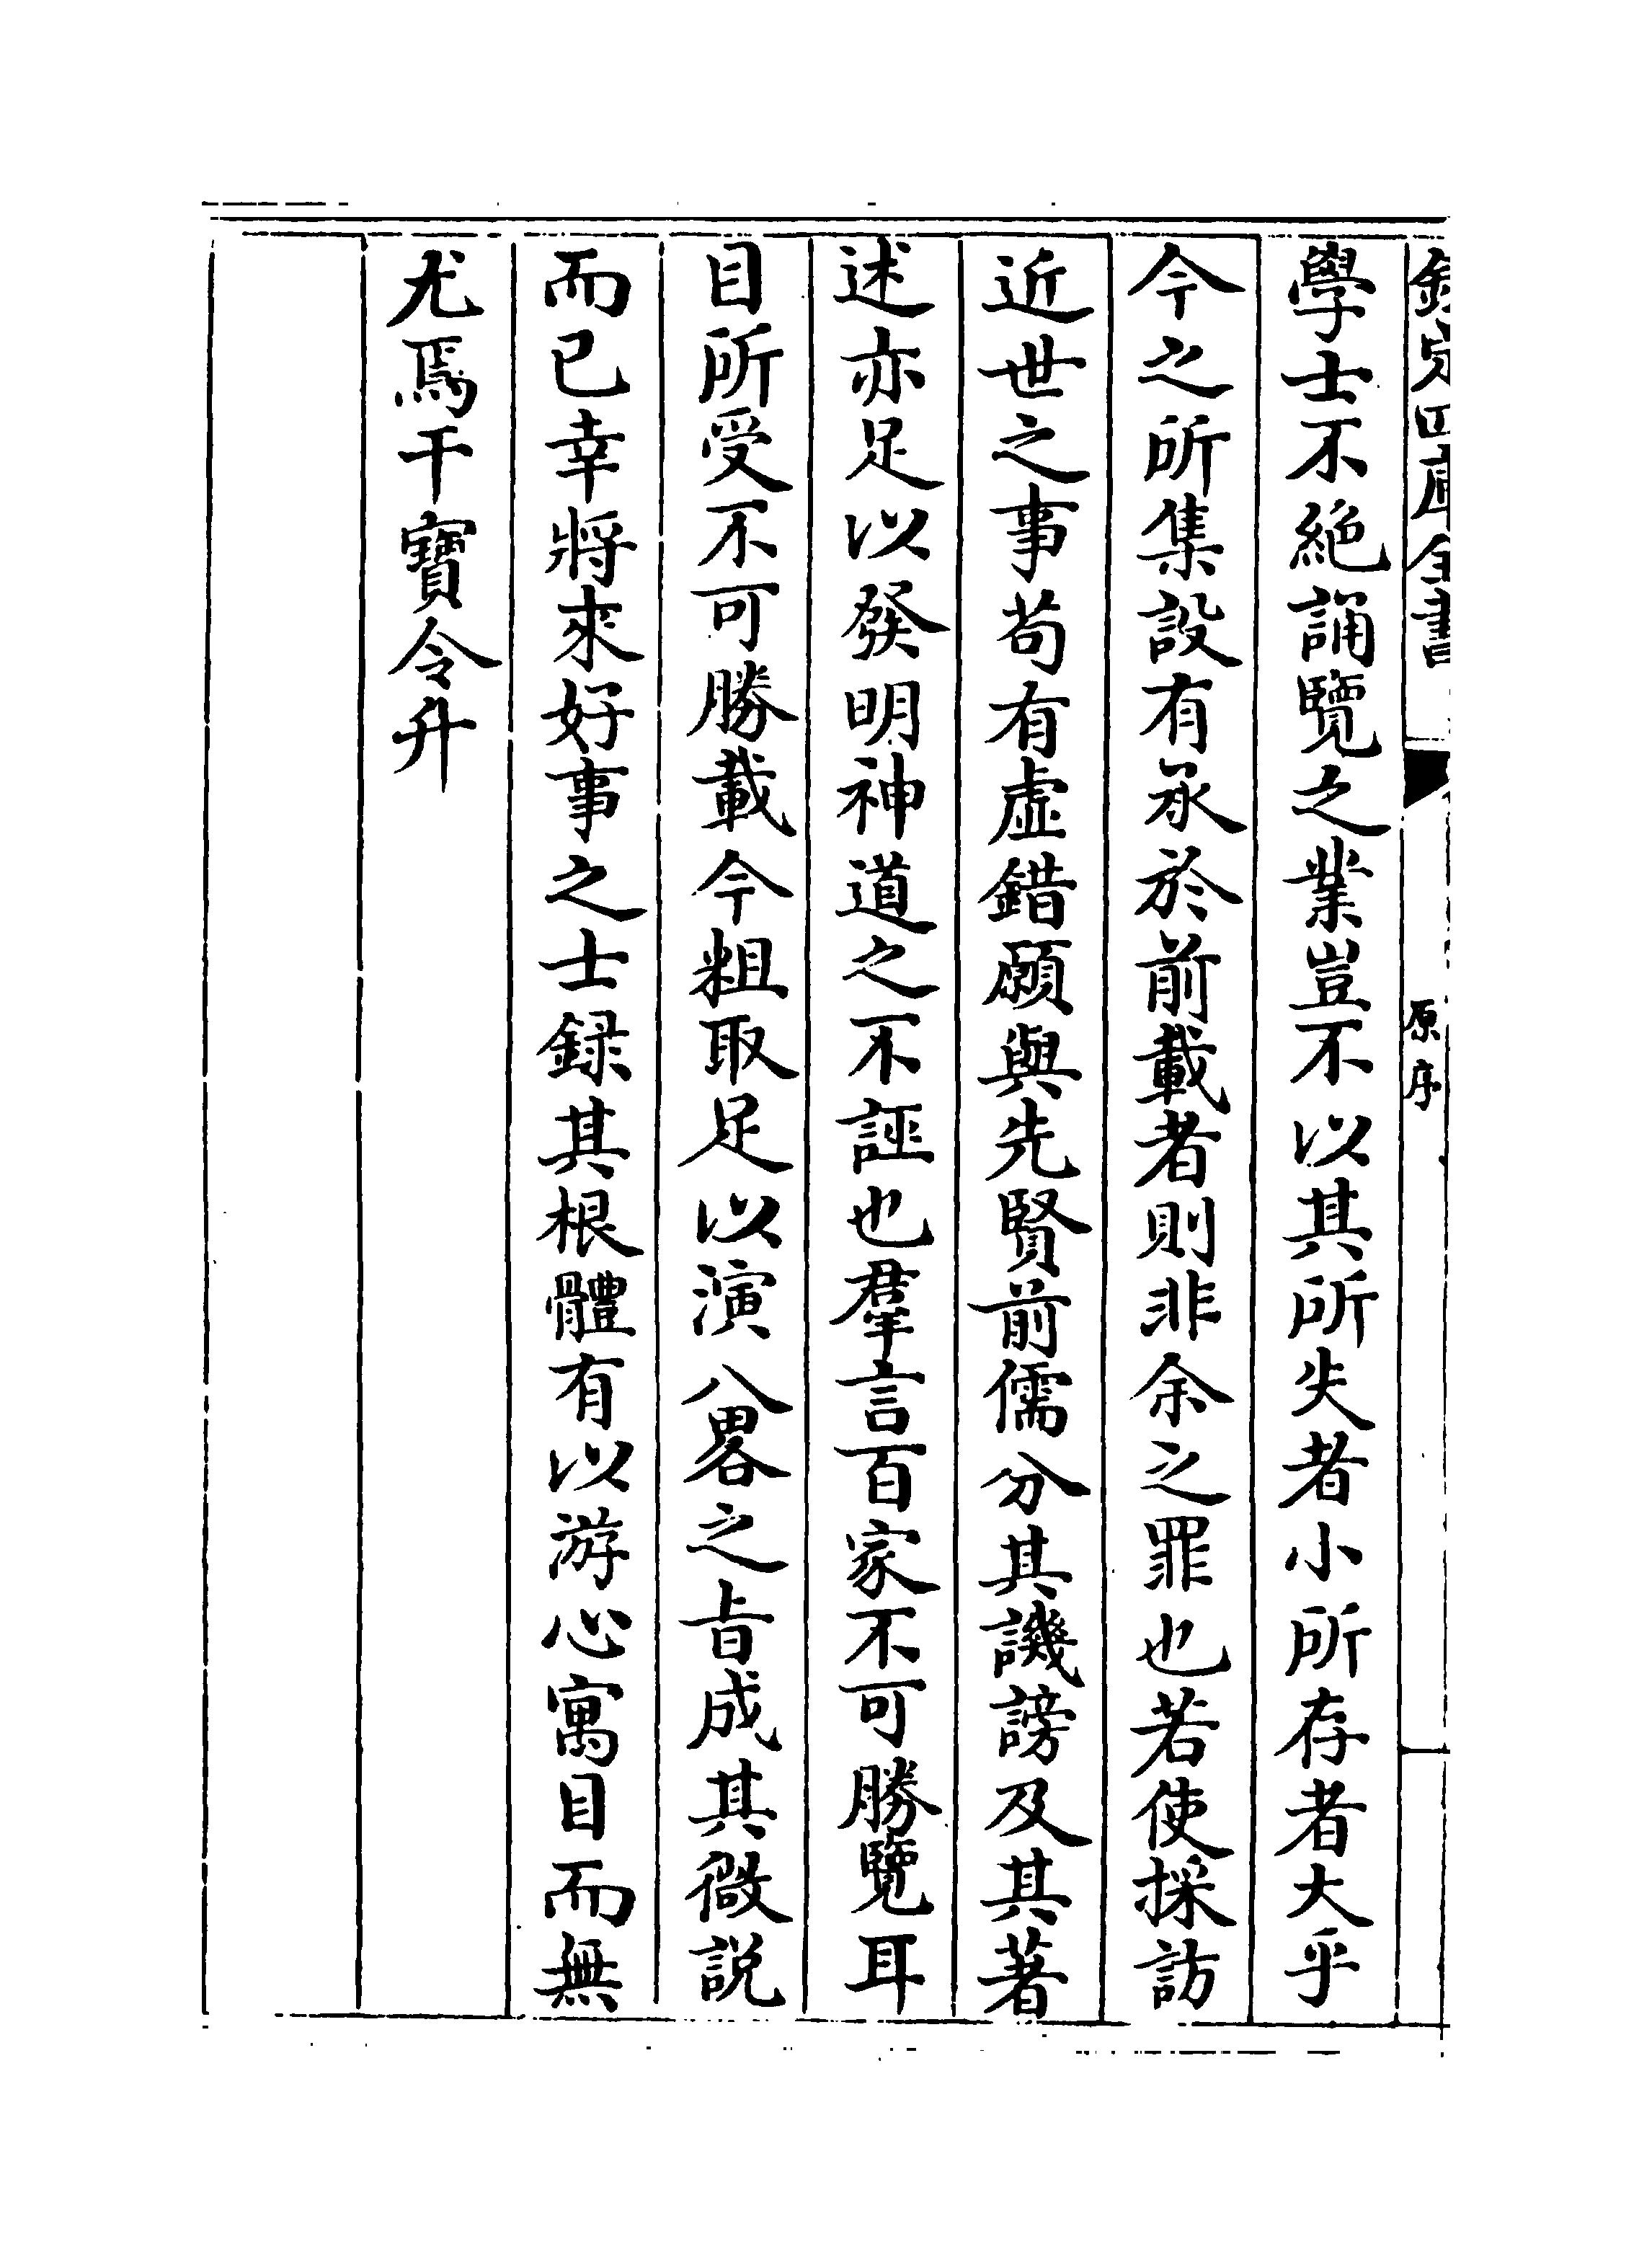 欽定四庫全書
原序
學士不絶誦覽之業豈不以其所失者小所存者大乎
今之所集設有承於前載者則非余之罪也若使採訪
近世之事茍有虚錯願與先賢前儒分其譏謗及其著
述亦足以發明神道之不誣也羣言百家不可勝覽耳
目所受不可勝載今粗取足以演八畧之㫖成其㣲説
而已幸將來好事之士録其根體有以游心寓目而無
尤焉干寶令升